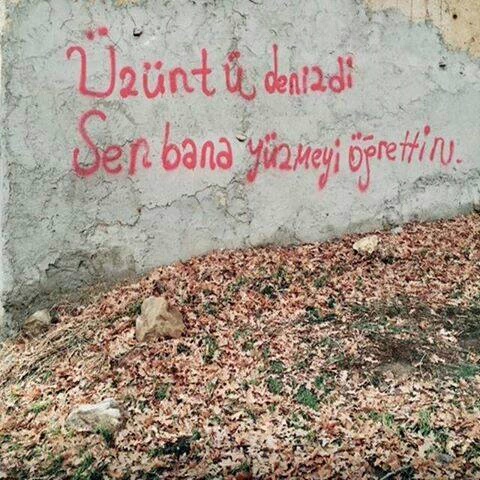 Üzüntü denizdi
Sen bana yüzmeyi öğrettin.